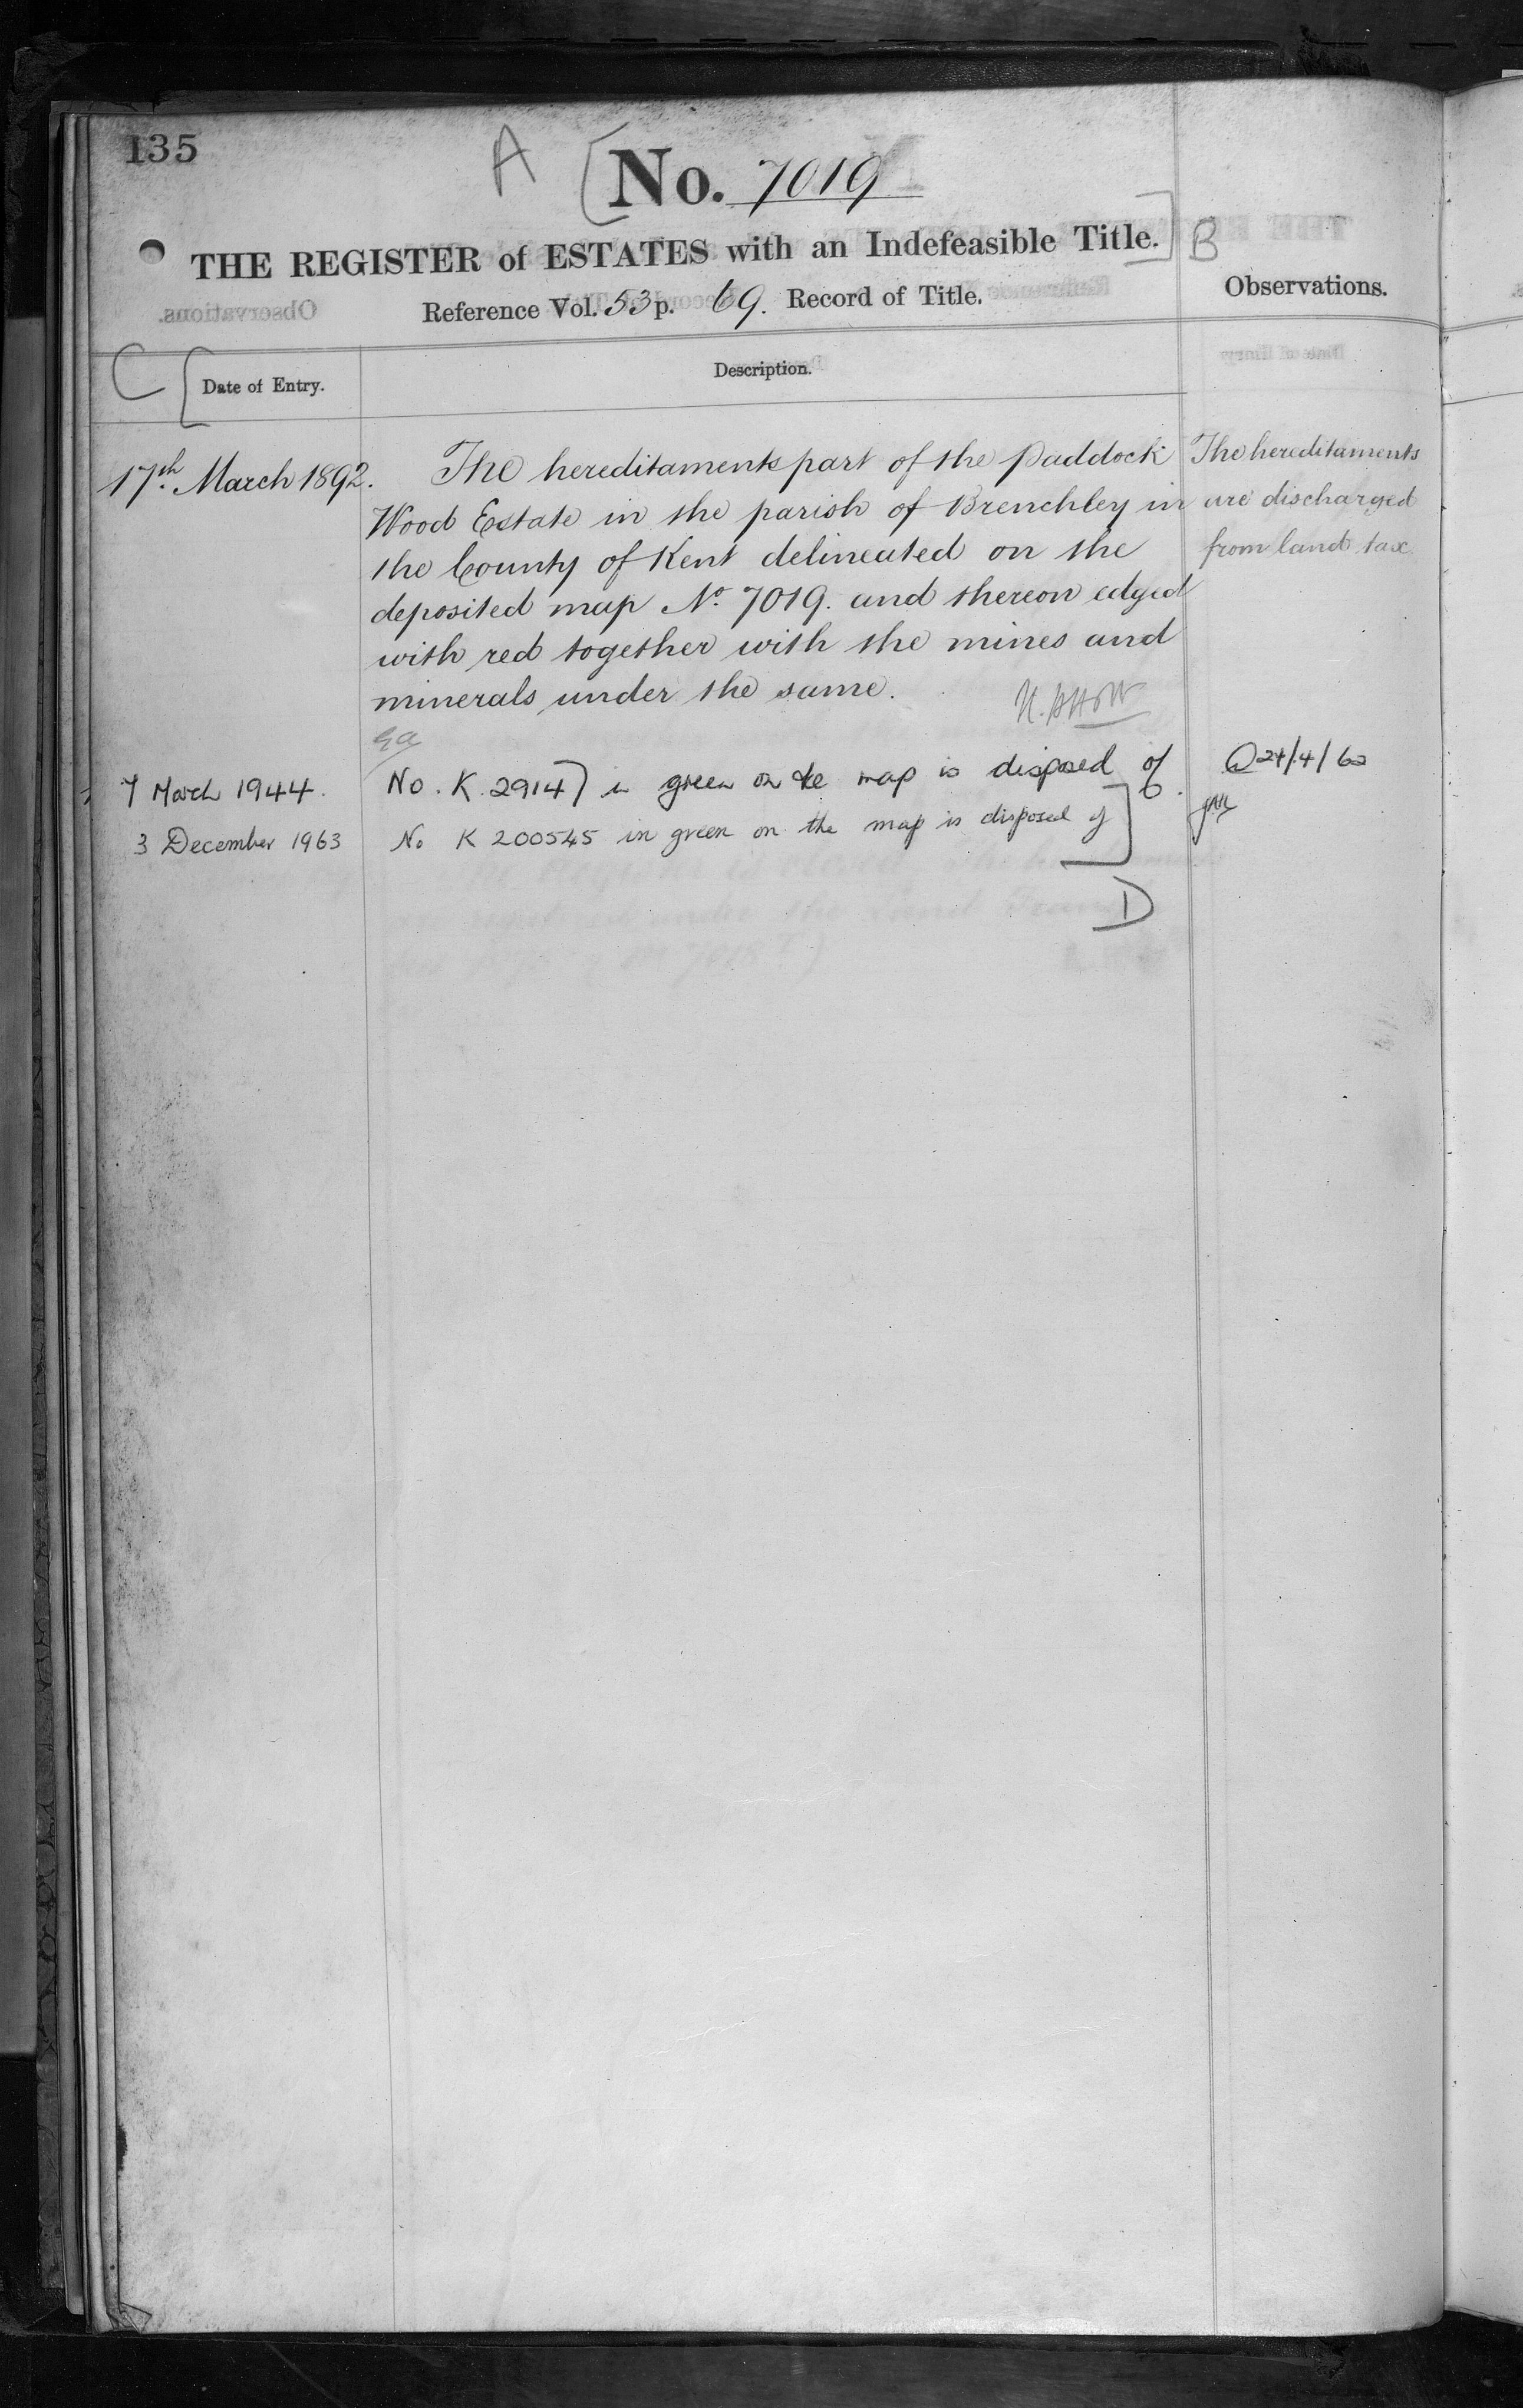 135
A [ No. 7019
THE REGISTER of ESTATES with an Indefeasible Title. ] B
Reference Vol. 53 p. 69. Record of Title.
Observations.
C [ Date of Entry.
Description.
17th March 1892.
The hereditaments part of the Paddock
Wood Estate in the parish of Brenchley in
the County of Kent delineated on the
deposited map No. 7019. and thereon edged
with red together with the mines and
minerals under the same.
The hereditaments
are discharged
from land tax
7 March 1944.
No. K. 29147 in green on the map is disposed of.
24/4/62
3 December 1963
No K 200545 in green on the map is disposed of ]
D